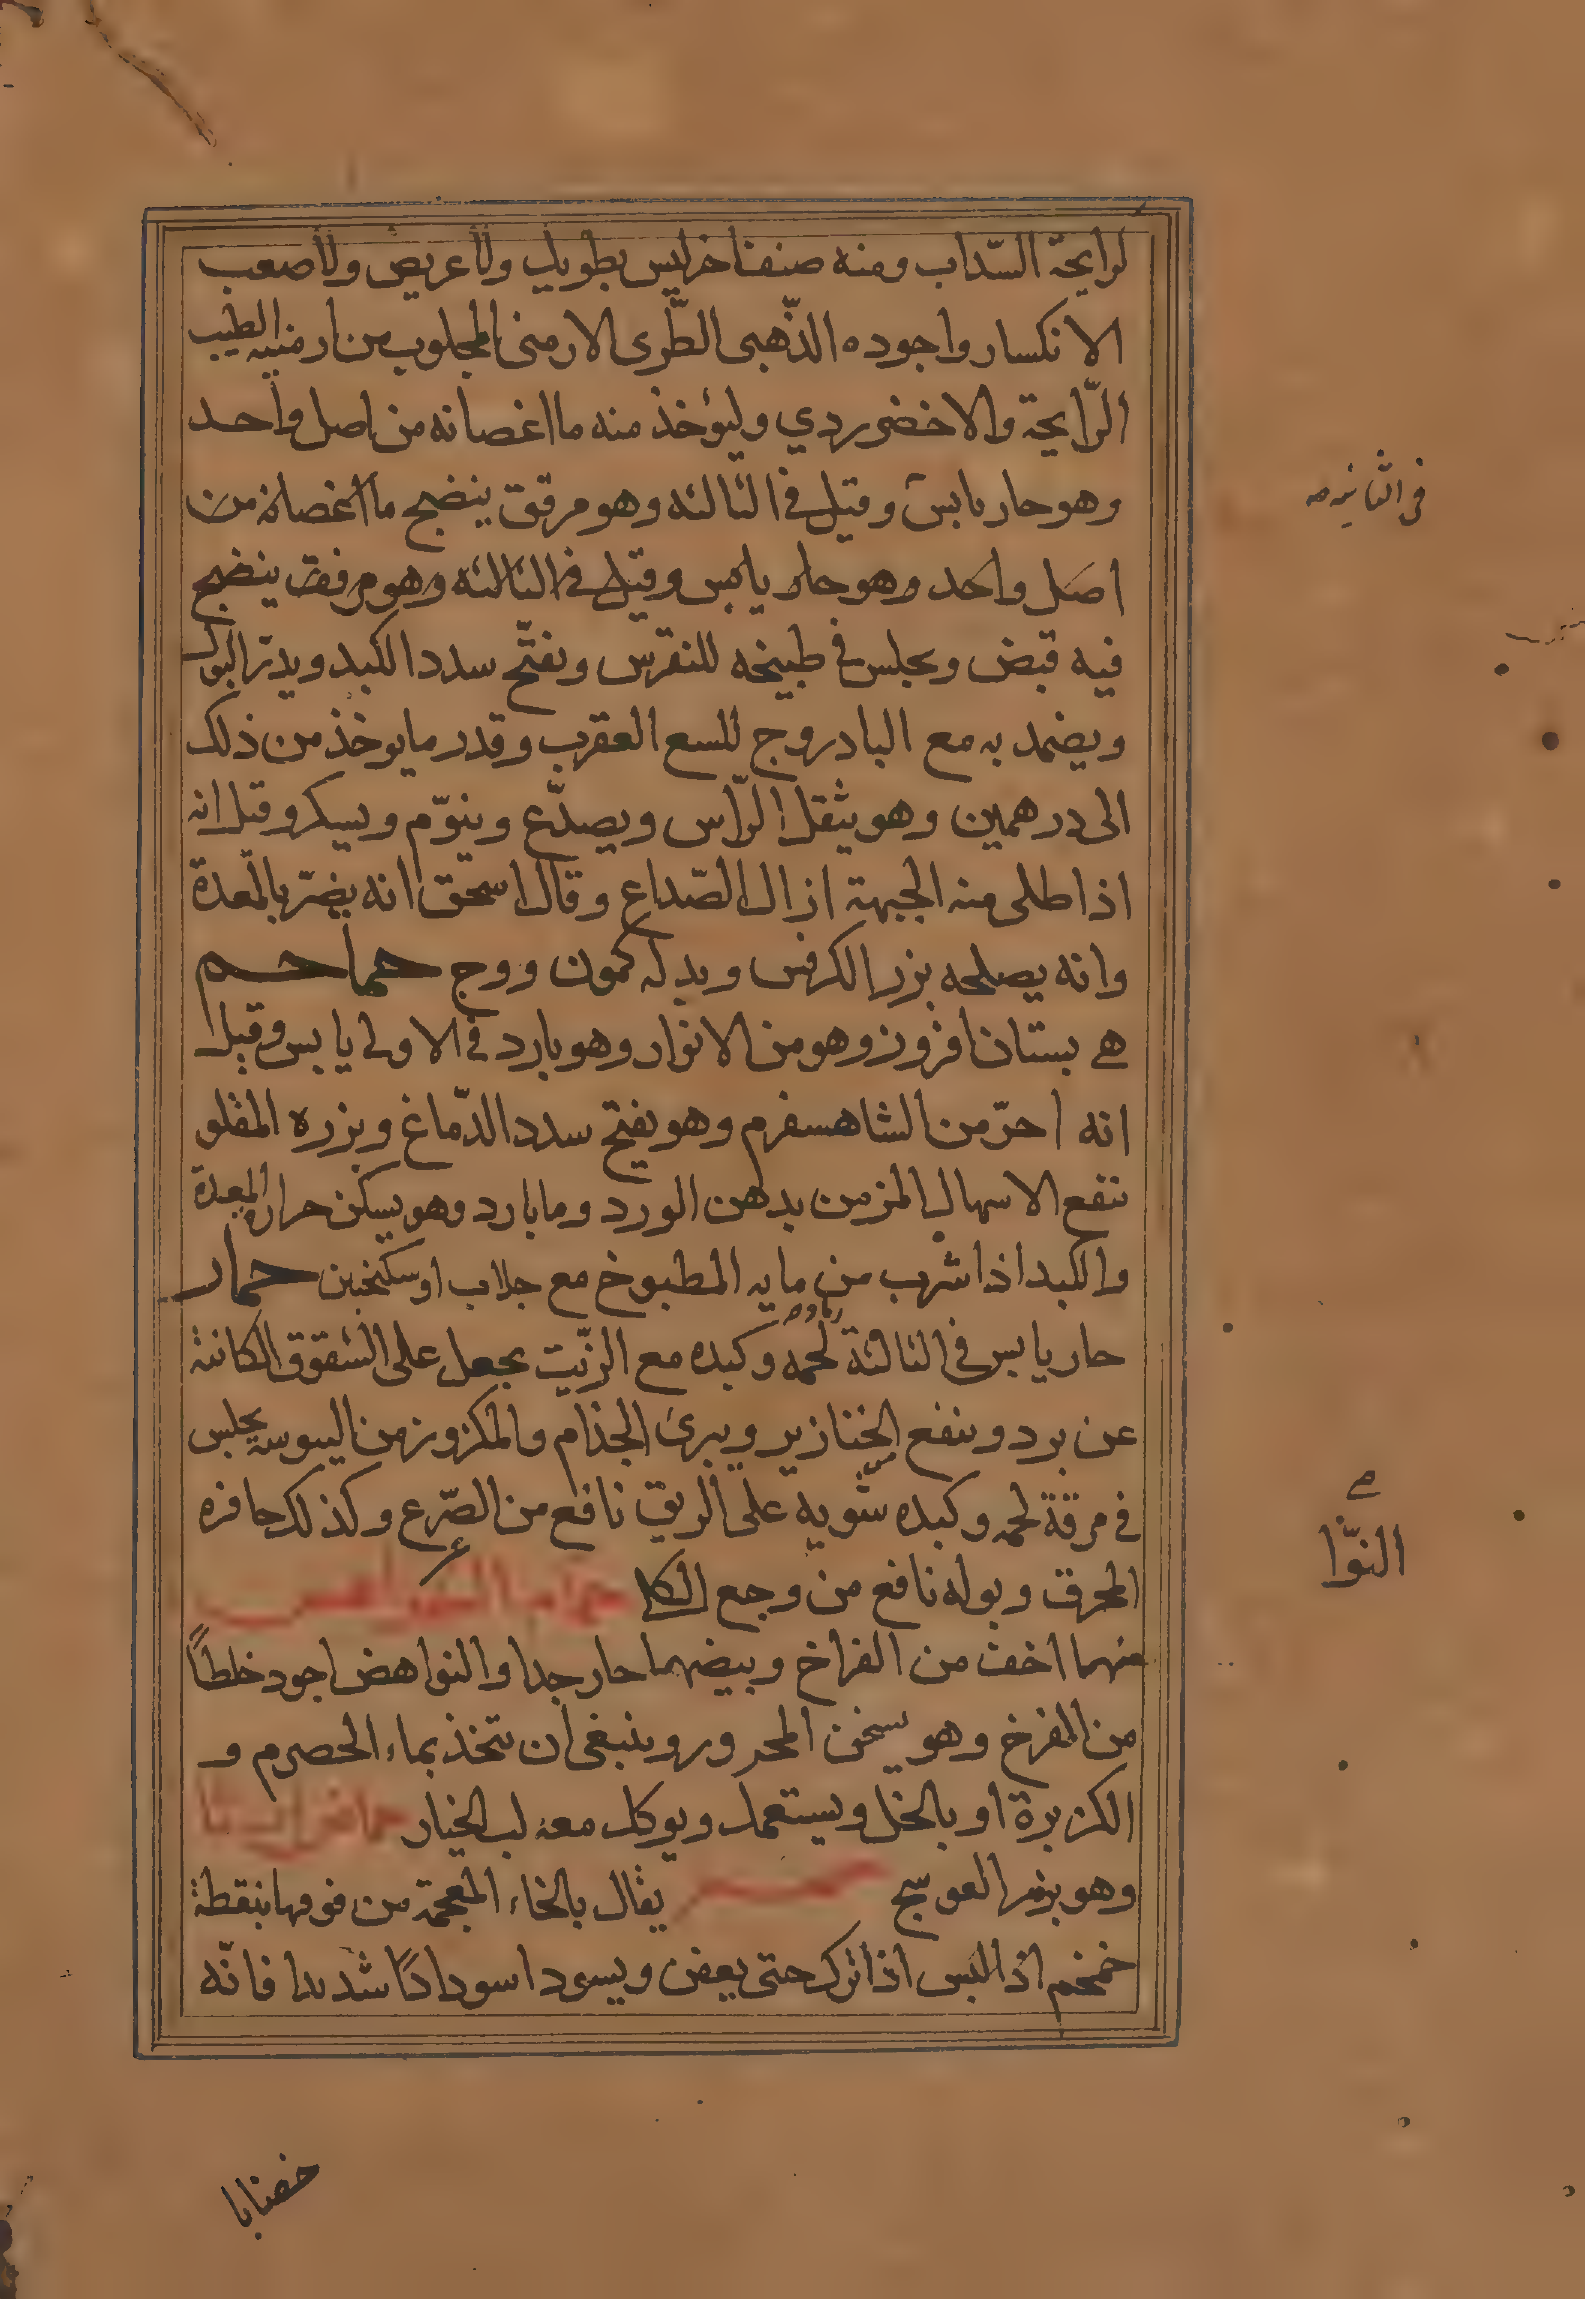 لرايحة السّداب ومنه صنف اخر ليس بطويل ولا عريض ولا صعب
الانكسار واجوده الذّهبى الطّرى الارمنى المجلوب من ارمنيه الطيب
الرّايحة والاخضر ردي وليؤخذ منه ما اغصانه من اصل واحد
وهو حار يابس وقيل فى الثالثه وهو مرقق ينضج ما اغصانه من
اصل واحد وهو حار يابس وقيل فى الثالثه وهو مرقق ينضج
فيه قبض ويجلس فى طبيخه للنقرس ويفتّح سدد الكبد ويدرّ البول
ويضمد به مع البادروج للسع العقرب وقدر ما يوخذ من ذلك
الى درهمين وهو يثقل الرّاس ويصدّع وينوّم ويسكر وقيل انه
اذا طلى منه الجبهة ازال الصّداع وقال اسحق انه يضرّ بالمعدة
وانه يصلحه بزر الكرفس وبدله كمون ووج حماحم
هى بستان افروز وهو من الانوار وهو بارد فى الاولى يابس وقيل
انه احرّ من الشاهسفرم وهو يفتح سدد الدّماغ وبزره المقلو
ينفع الاسهال المزمن بدهن الورد وما بارد وهو يسكن حرارة المعدة
والكبد اذا شرب من مايه المطبوخ مع جلاب او سكنجبين حمار
حار يابس فى الثالثة لحمه وكبده مع الزّيت يجعل على الشقوق الكائنة
عن برد وينفع الخنازير ويبرئ الجذام والمكزوز من اليبوسه يجلس
فى مرقة لحمه وكبده مشويه على الريق نافع من الصّرع وكذلك حافره
المحرق وبوله نافع من وجع الكلا حمام النواهض
منهما اخف من الفراخ وبيضهما حار جدا والنواهض اجود خلطاً
من الفرخ وهو يسخن المحرور وينبغى ان يتخذ بماء الحصرم و
الكزبرة او بالخل ويستعمل ويوكل معه لب الخيار
وهو بزر العوسج يقال بالخاء المعجمة من فوقها بنقطة
خمخم اذا ترك حتى يعفن ويسود اسودادًا شديدا فانّه
فى الثانيه صح
النوّا